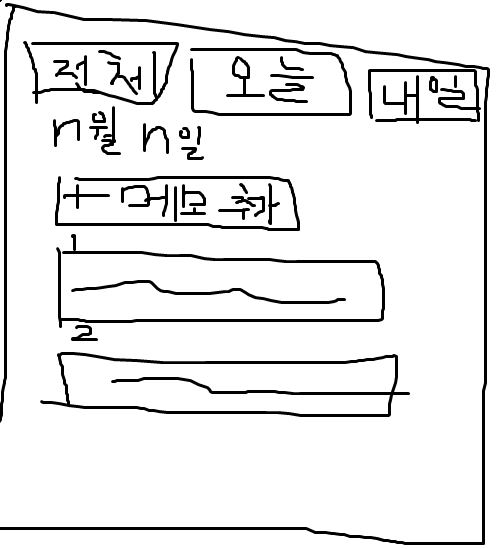 전체 오늘 내일
n월 n일
+ 메모 추가
1
2